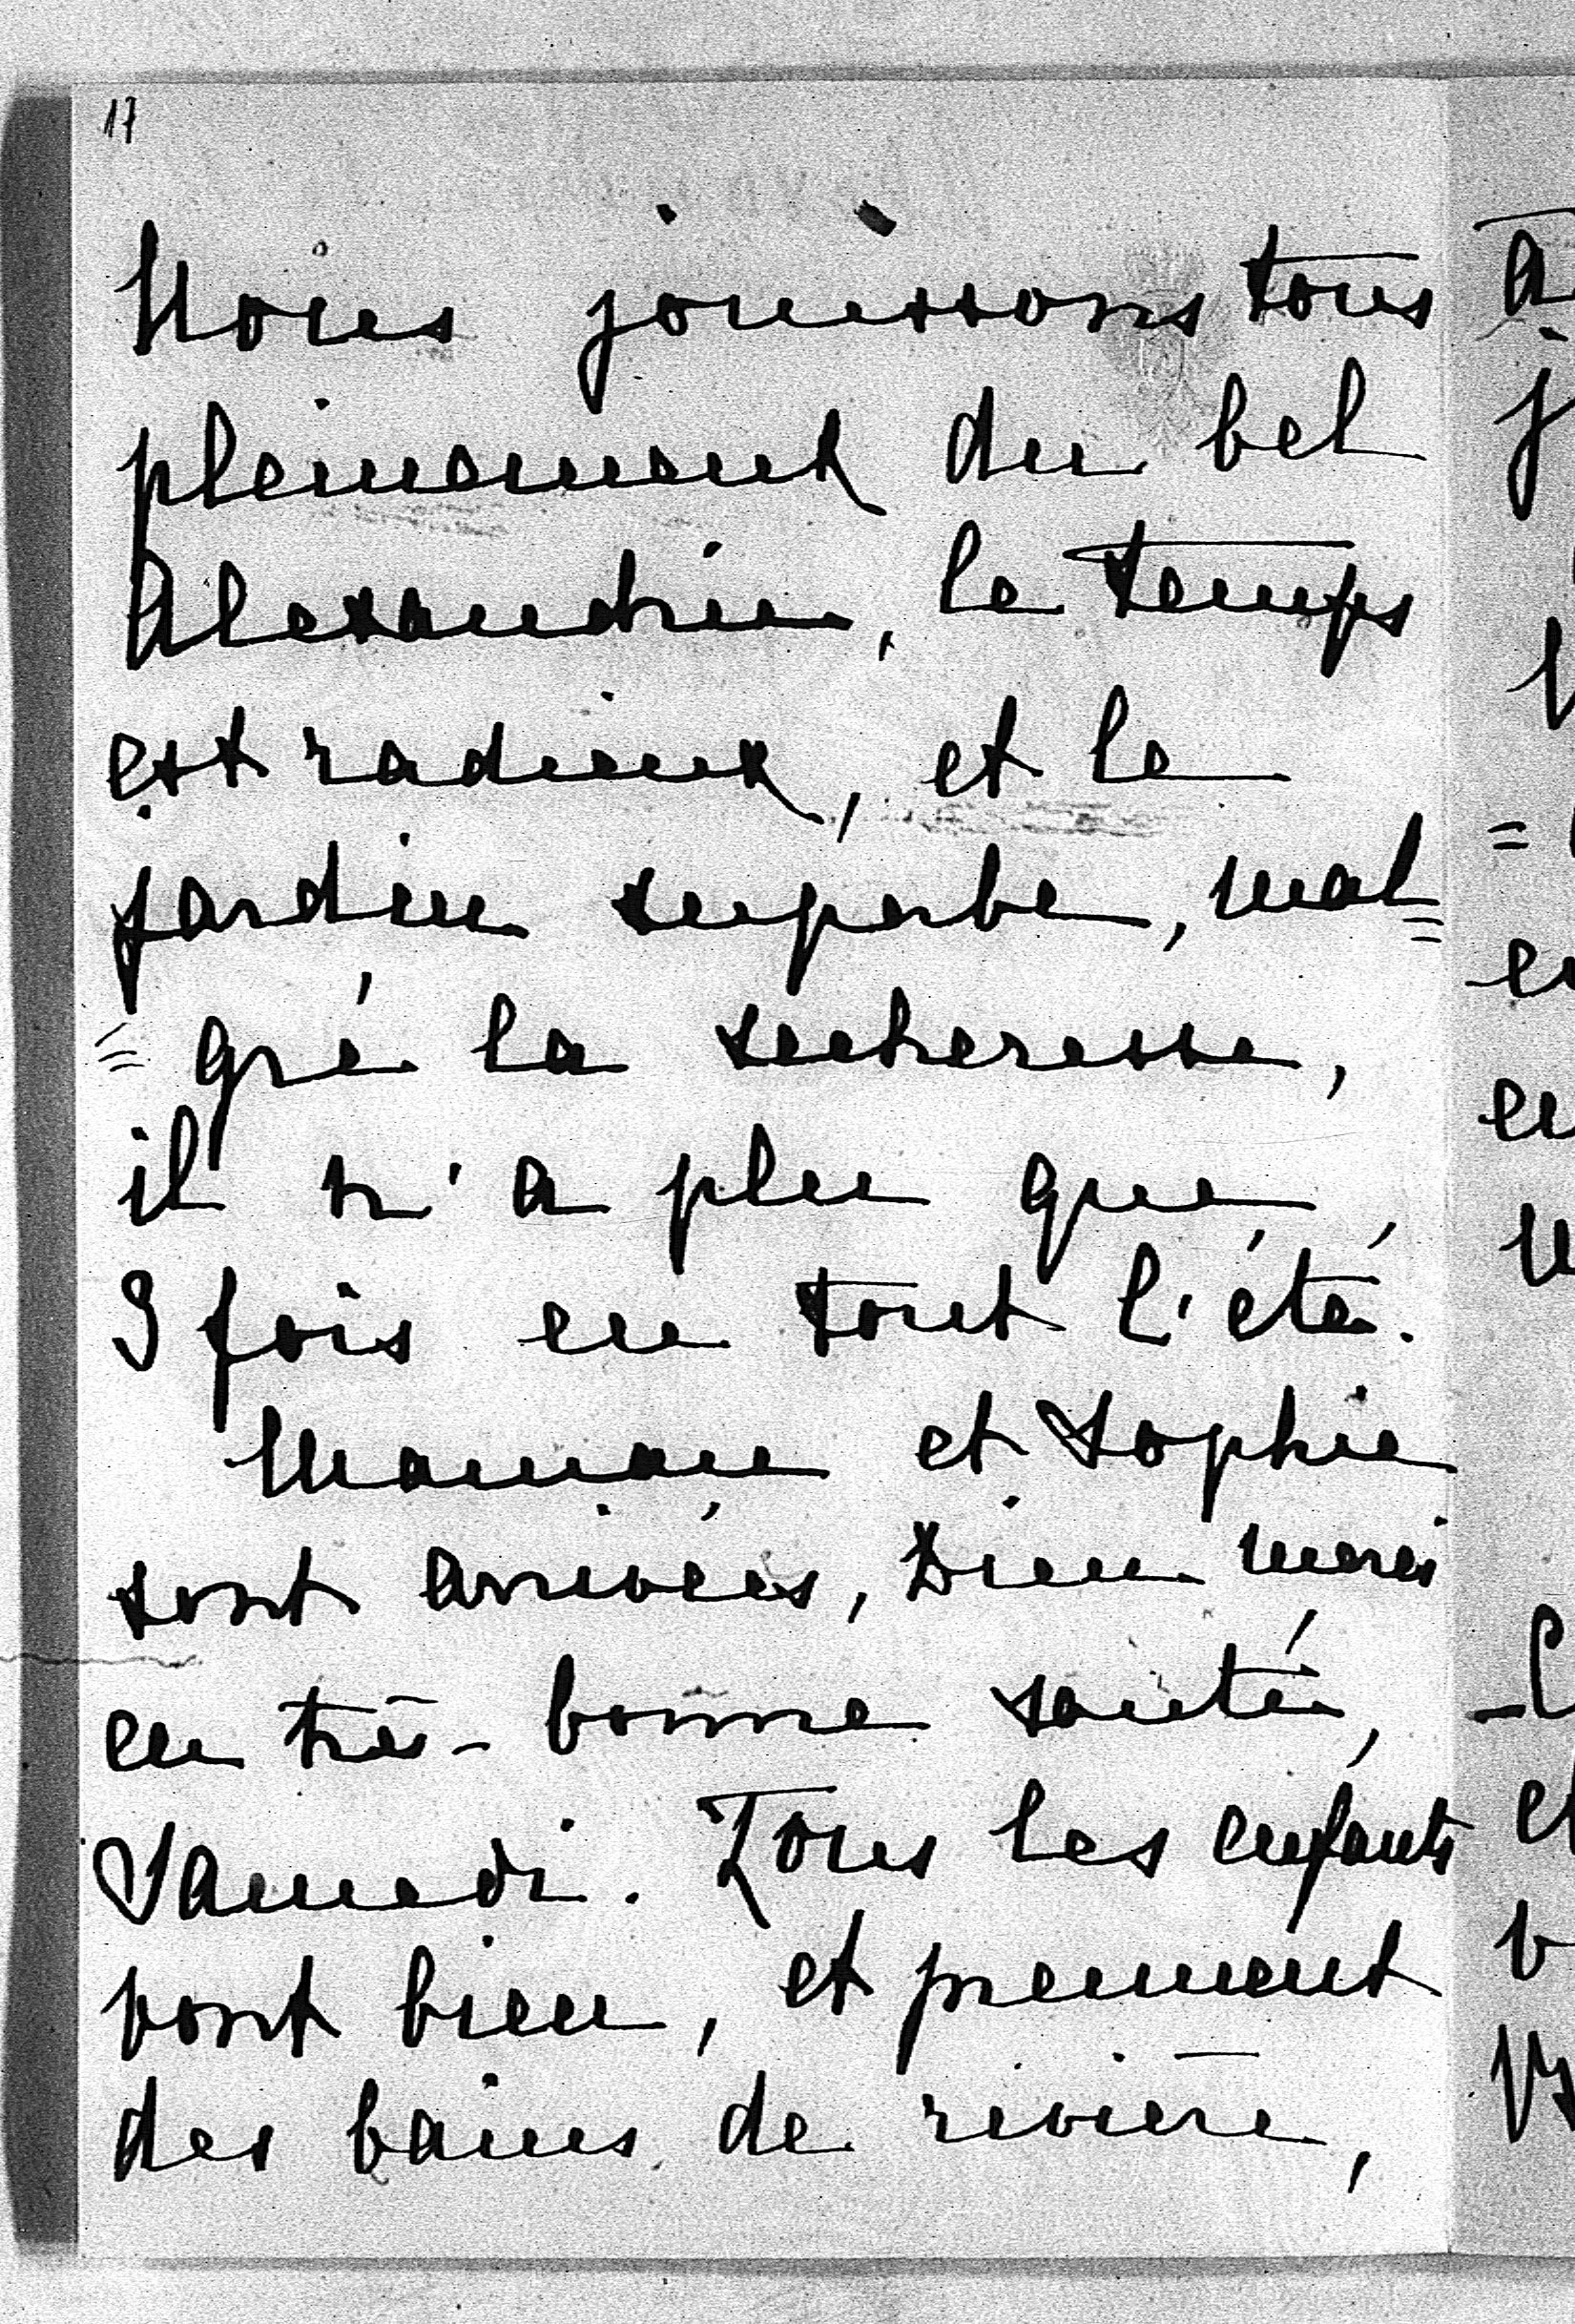 17
Nous jouissons tous
pleinement du bel
Alexandrien, le temps
est radieux, et le
jardin superbe, mal=
= gré la secheresse,
il n'a plu que
3 fois en tout l'été.
Maman et Sophie
sont arrivées, Dieu merci
en très-bonne santé,
Samedi. Tous les enfants
vont bien, et prennent
des bains de rivière,